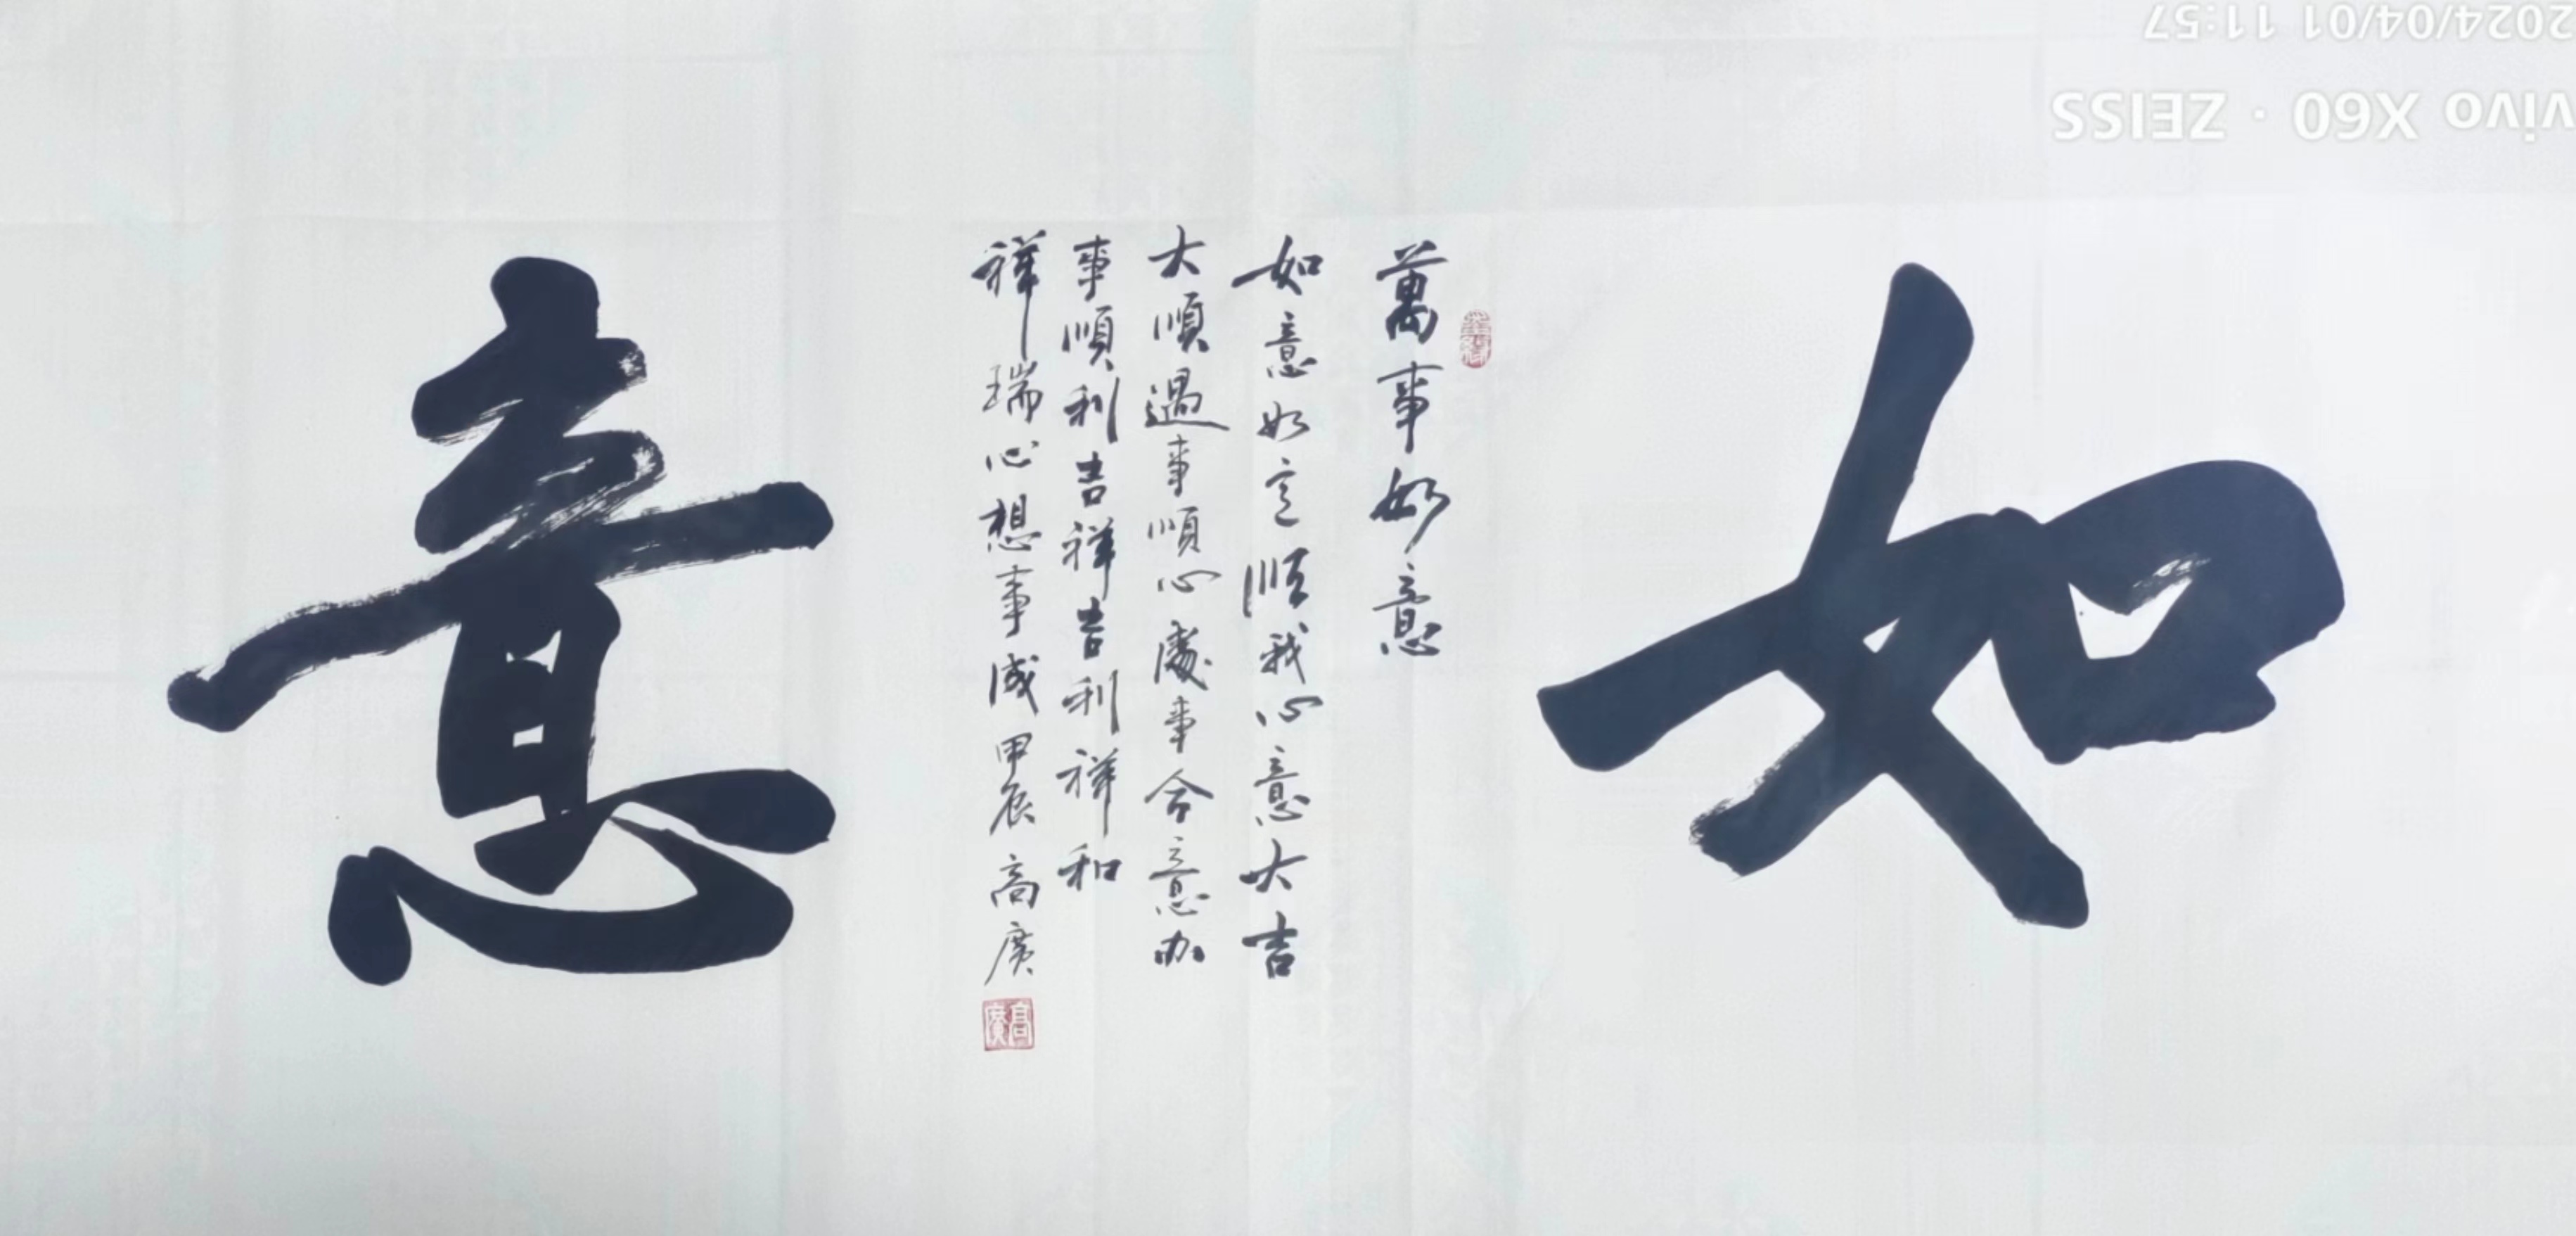 如
萬事如意
如意如意順我心意大吉
大順遇事順心處事合意加
事順利吉祥吉利祥和
祥瑞心想事成甲辰高廣
高廣
意
vivo X60 · ZEISS
2024/04/01 11:57